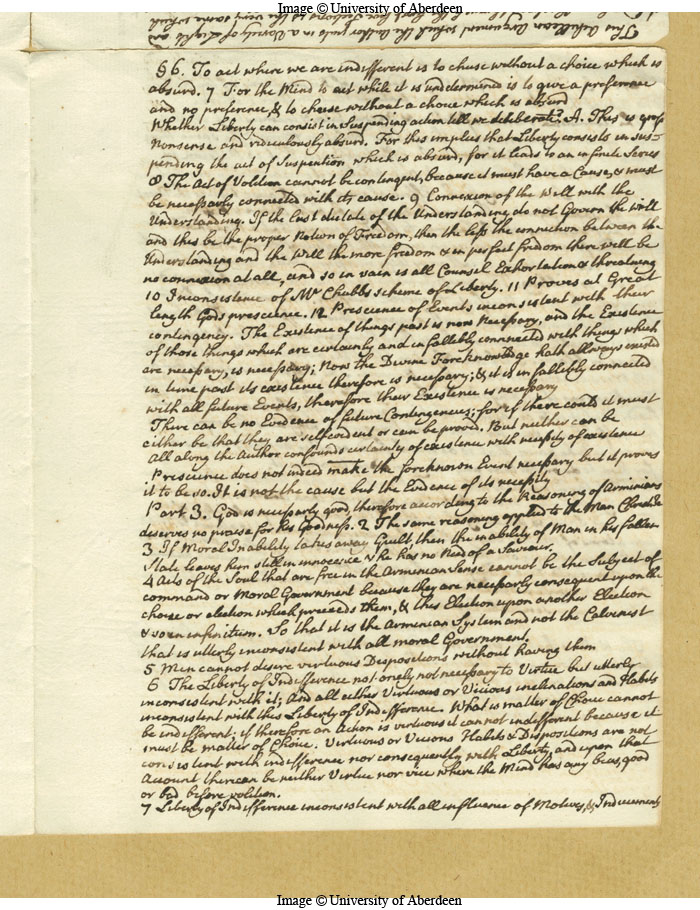 Image © University of Aberdeen
§6. To act where we are indifferent is to chuse without a choice which is
absurd. 7 For the Mind to act while it is undetermined is to give a preference
and no preference, & to choose without a choice which is absurd
Whether Liberty can consist in Suspending action till we deliberate? A. This is gross
Nonsense and ridiculously absurd. For this implies that Liberty consists in sus-
pending the act of Suspention which is absurd, for it leads to an infinite Series
8 The Act of Volition cannot be contingent, because it must have a Cause, & must
be necessarly connected with its cause. 9 Connexion of the Will with the
Understanding. If the last dictate of the Understanding do not Govern the will
and this be the proper Notion of Freedom, then the less the connection between the
Understanding and the Will the more freedom & in perfect fredom there will be
no connexion at all, and so in vain is all Counsel Exhortation & threatning
10 Inconsistence of Mr Chubbs scheme of Liberty. 11 Proves at Great
length Gods prescience. 12 Prescience of Events inconsistent with their
contingency. The Existence of things past is now Necessary, and the Existence
of those things which are certainly and infallibly connected with things which
are necessary, is necessary; Now the Divine Foreknowledge hath allways existed
in time past its existence therefore is necessary; & it is infallibly connected
with all future Events, therefore their Existence is necessary
There can be no Evidence of future Contingencys; for if there could it must
either be that they are self evident or can be proved. But neither can be
All along the Author confounds certainty of existence with necessity of existence
Prescience does not indeed make the foreknown Event necessary but it proves
it to be so. It is not the cause but the Evidence of its necessity
Part 3. God is necessarly good, therefore according to the Reasoning of Arminians
deserves no praise for his Goodness. 2 The same reasoning applied to the Man Christ
3 If Moral Inability takes away Guilt, then the inability of Man in his fallen
State leaves him still in innocence & he has no Need of a Saviour.
4 Acts of the Soul that are free in the Armenian Sense cannot be the Subject of
command or Moral Government because they are necessarly consequent upon the
choise or election which preceeds them, & this Election upon another Election
& so on infinitum. So that it is the Armenian System and not the Calvenest
that is utterly inconsistent with all moral Government.
5 Men cannot desire virtuous Dispositions without having them
6 The Liberty of Indifference not onely not necessary to Virtue but utterly
inconsistent with it; And all either Virtuous or Vicious inclinations and Habits
inconsistent with this Liberty of Indifference. What is matter of Choice cannot
be indifferent; if therefore an Action is virtuous it cannot indifferent because it
must be matter of Choice. Virtuous or Vicious Habits & Dispositions are not
consistent with indifference nor consequently with Liberty, and upon that
Account there can be neither Virtue nor vice where the Mind has any beas, good
or bad before volition.
7 Liberty of Indifference inconsistent with all influence of Motives, & Inducements
Image © University of Aberdeen